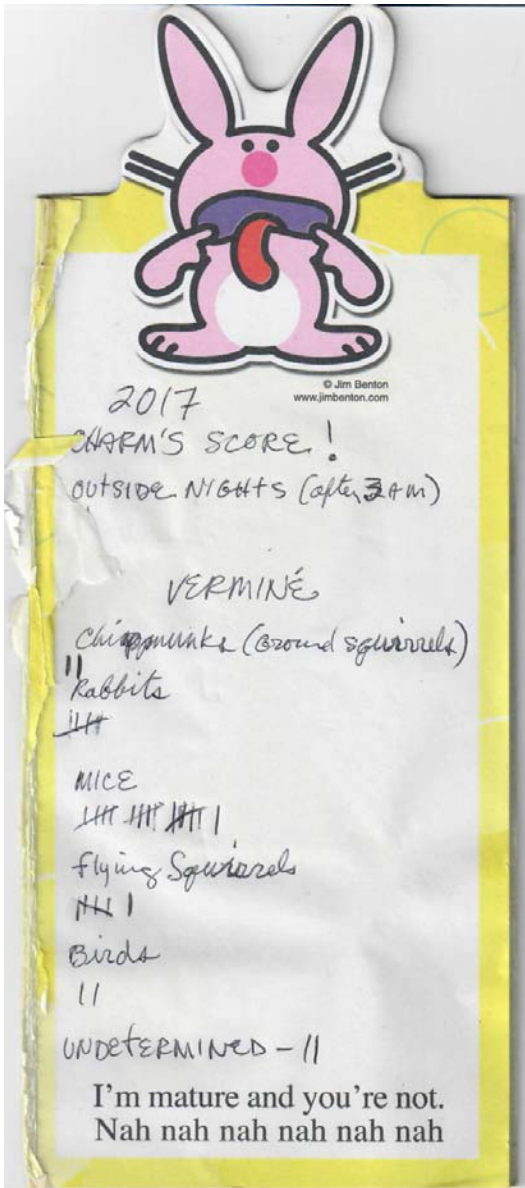 © Jim Benton
www.jimbenton.com
2017
CHARM'S SCORE!
OUTSIDE NIGHTS (after 3 AM)
VERMINÉ
Chippmunks (Ground squirrels)
||
Rabbits
卌
MICE
卌 卌 卌 |
Flying Squirrels
卌 |
Birds
||
UNDETERMINED - ||
I'm mature and you're not.
Nah nah nah nah nah nah